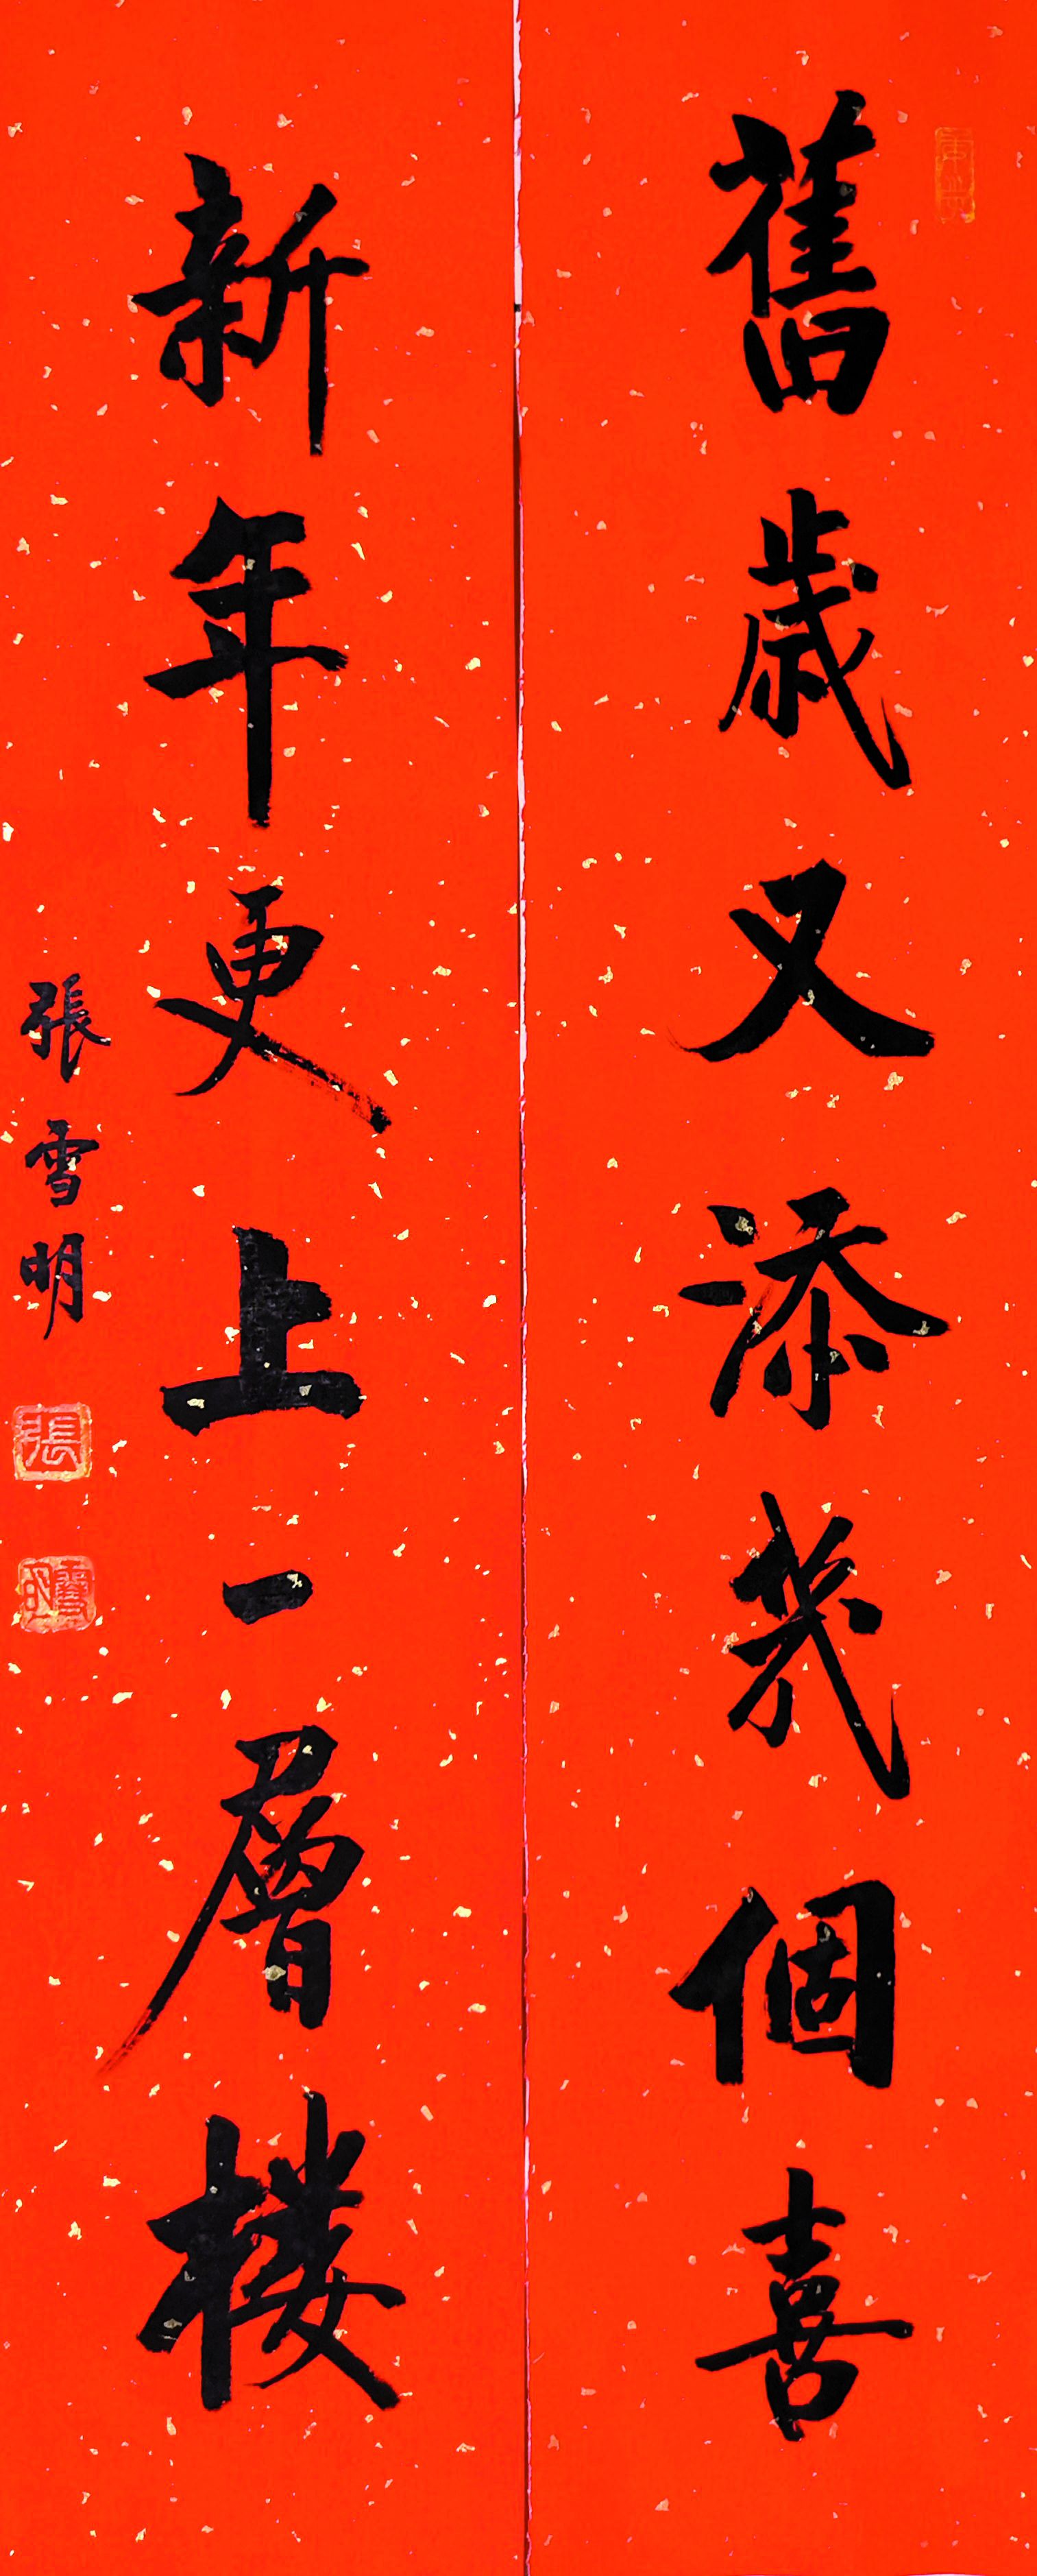 舊歲又添幾個喜
新年更上一層樓
張雪明
張
雪明